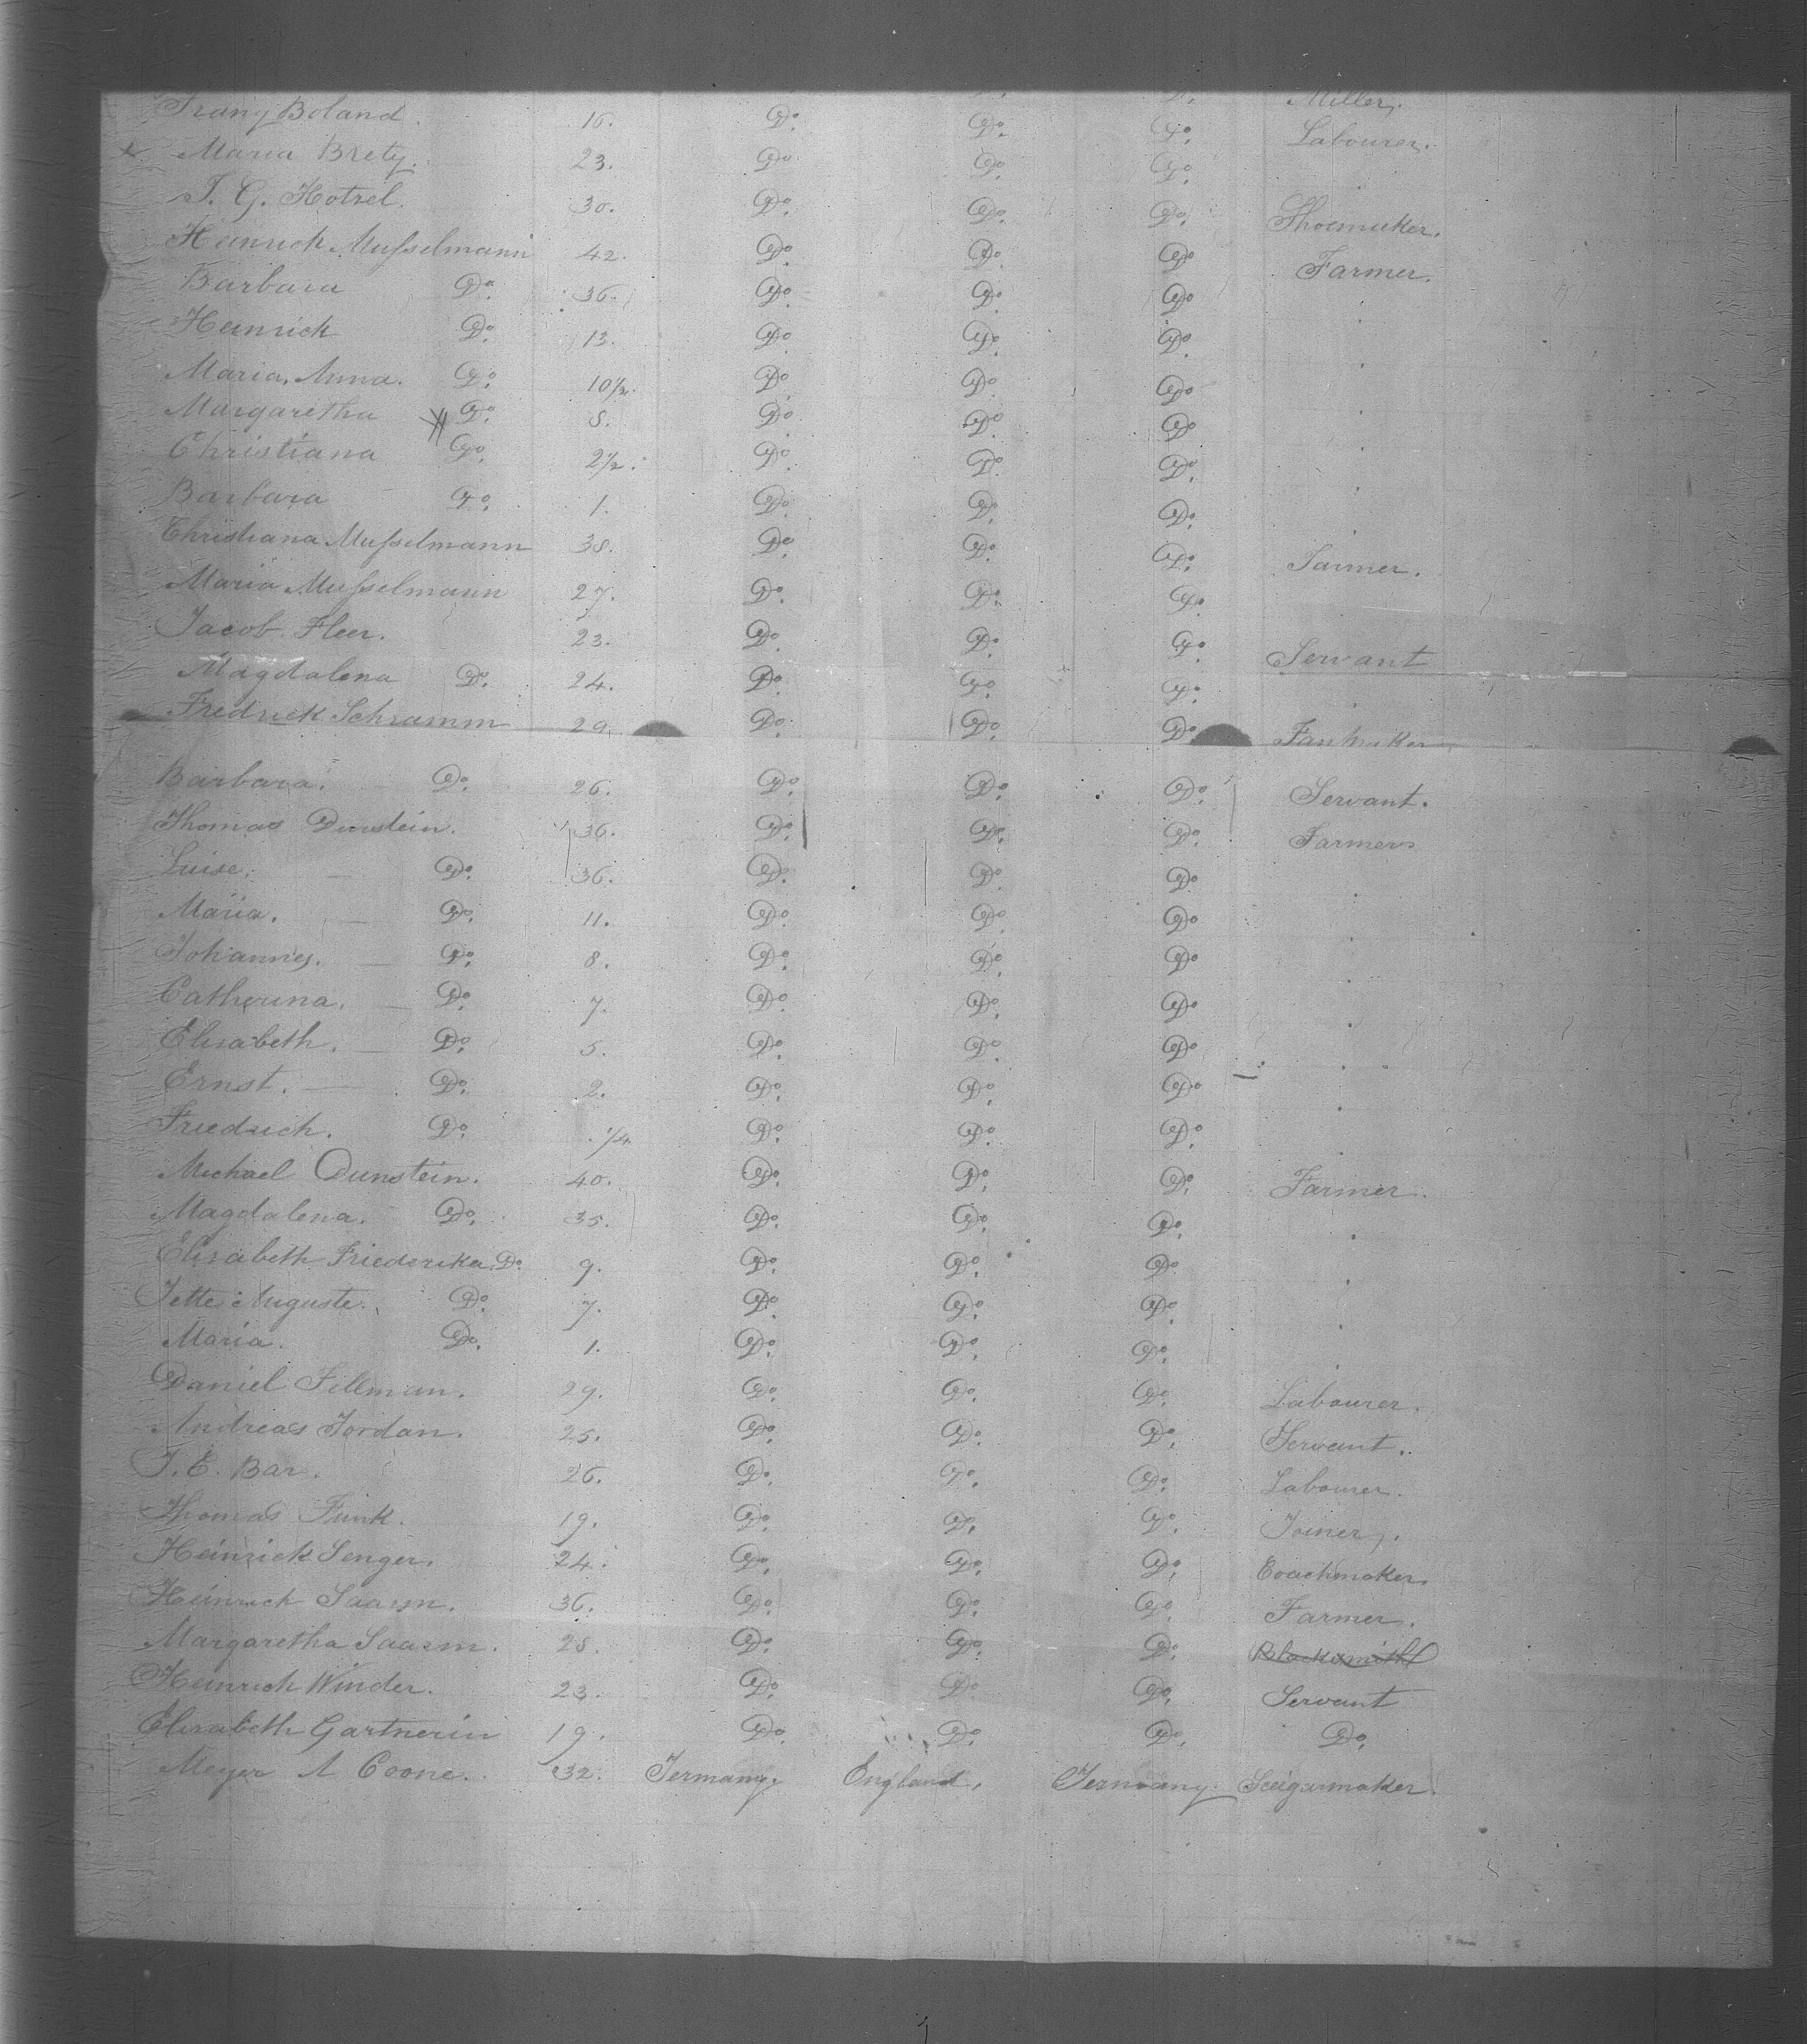 Do. Do. Miller,
Franz Boland. 16. Do. Do. Do. Labourer.
x Maria Brety. 23. Do. Do. Do.
T. G. Hotzel. 30. Do. Do. Do. Shoemaker.
Heinrich Musselmann 42. Do. Do. Do Farmer.
Barbara Do. 36. Do. Do. Do
Heinrich Do. 13. Do. Do. Do.
Maria, Anna. Do. 10 1/2. Do. Do. Do
Margaretha Do. 8. Do. Do. Do
Christiana Do. 2 1/2. Do. Do. Do.
Barbara Do. 1. Do. Do. Do.
Christiana Musselmann 38. Do. Do. Do. Farmer.
Maria Musselmann 27. Do. Do. Do.
Jacob. Fleer. 23. Do. Do. Do. Servant
Magdalena Do. 24. Do. Do. Do.
Fredrick Schramm 29. Do. Do. Do.
Barbara. Do. 26. Do. Do. Do. Servant.
Thomas Dunstein. 36. Do. Do. Do. Farmer
Luise. Do. 36. Do. Do. Do
Maria. Do. 11. Do. Do. Do
Johannes. Do. 8. Do. Do. Do
Catharina. Do. 7. Do. Do. Do
Elisabeth. Do. 5. Do. Do. Do
Ernst. Do. 2. Do. Do. Do
Friedrich. Do. 1/4 Do. Do. Do.
Michael Dunstein. 40. Do. Do. Do. Farmer.
Magdalena. Do. 35. Do. Do. Do.
Elisabeth Friederika Do. 9. Do. Do. Do.
Jette Auguste. Do. 7. Do. Do. Do.
Maria. Do. 1. Do. Do. Do.
Daniel Fellman. 29. Do. Do. Do. Labourer.
Andreas Jordan. 25. Do. Do. Do. Servant.
T. E. Bar. 26. Do. Do. Do. Labourer.
Thomas Funk. 19. Do. Do. Do. Joiner.
Heinrick Senger. 24. Do. Do. Do. Coachmaker.
Heinrich Saarm. 36. Do. Do. Do. Farmer.
Margaretha Saarm. 28. Do. Do. Do. Blacksmith
Heinrich Winder. 23. Do. Do. Do. Servant
Elisabeth Gartnerin 19. Do. Do. Do. Do.
Meyer A Coone. 32. Germany. England, Germany. Seegarmaker.